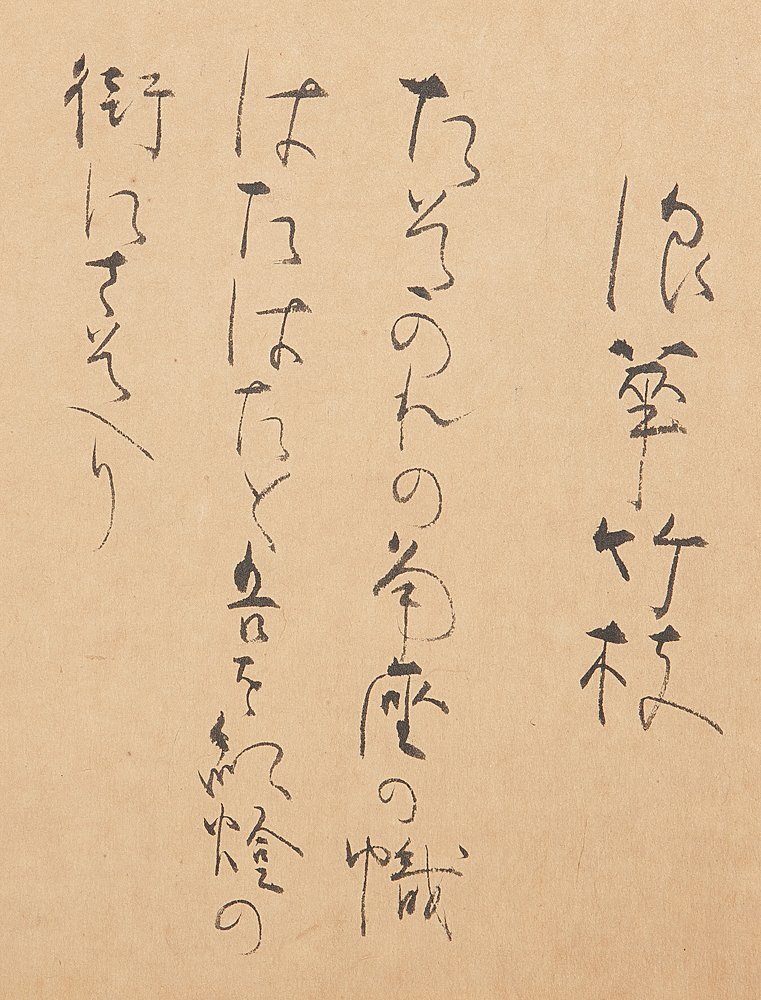 浪華竹枝
たそかれの角座の幟
はたはたと吾を紅燈の
街にさそへり